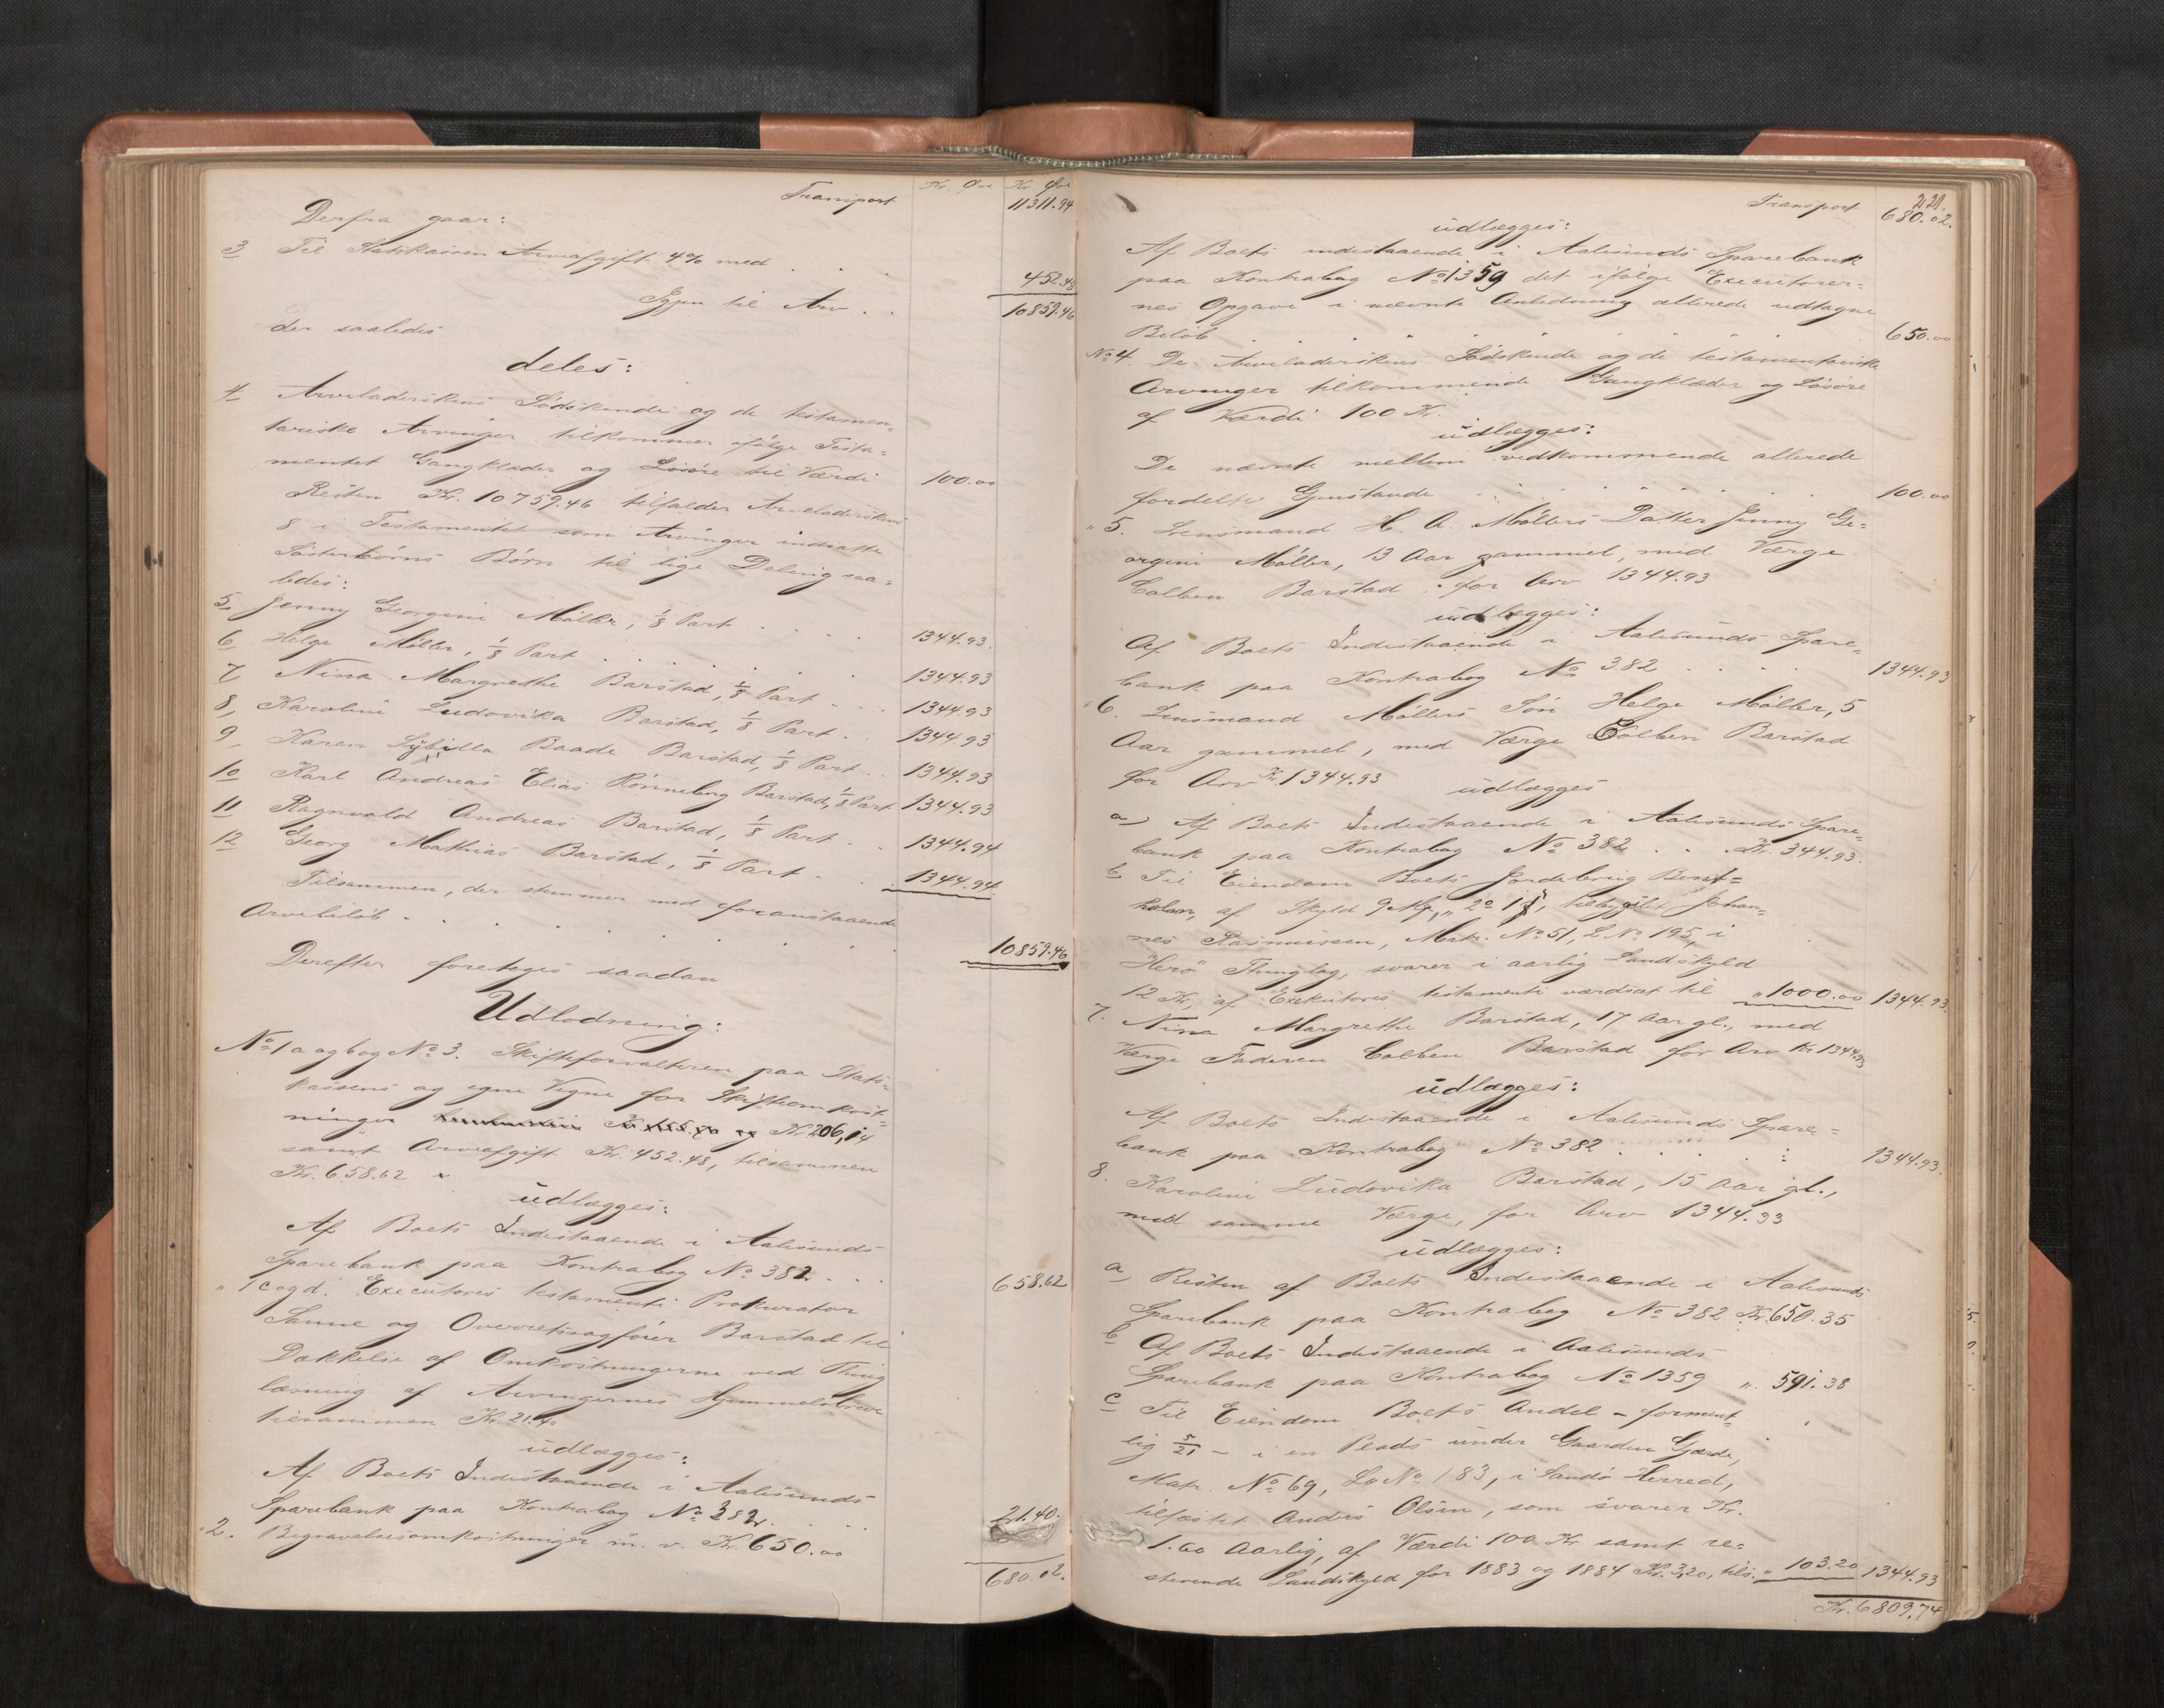 Kr. Øre Kr. Øre
Transport 11311.94
Derfra gaar:
3 Til Statskassen Arveafgift 4% med . . . 452.48
Igjen til Arv . . 10859.46
der saaledes
deles:
4 Arveladerskens Södskende og de testamen-
tariske Arvinger tilkommer ifölge Testa-
mentet Gangklæder og Lösöre til Værdi 100.00
Resten Kr. 10759.46 tilfalder Arveladerskens
8 i Testamentet som Arvinger indsatte
Søsterbörns Börn til lige Deling saa-
ledes:
5 Jenny Georgine Möller, 1/8 Part . . . . 1344.93.
6 Helge Möller, 1/8 Part . . . . . . 1344.93
7 Nina Margrethe Barstad, 1/8 Part . . . 1344.93
8, Karoline Ludovika Barstad, 1/8 Part . 1344.93
9, Karen Sybilla Baade Barstad, 1/8 Part . . 1344.93
10 Karl Andreas Elias Rönneberg Barstad, 1/8 Part 1344.93
11 Ragnvald Andreas Barstad, 1/8 Part . . 1344.94
12 Georg Mathias Barstad, 1/8 Part . . . 1344.94.
Tilsammen, der stemmer med foranstaaende
Arvebelöb . . . . . . . 10859.46
Derefter foretages saadan
Udlodning:
No 1 a og b og No 3. Skifteforvalteren paa Stats-
kassens og egne Vegne for Skifteomkost-
ninger Kr. 206,14
samt Arveafgift Kr. 452.48, tilsammen
Kr. 658.62
udlægges:
Af Boets Indestaaende i Aalesunds
Sparebank paa Kontrabog No 382 . . . 658.62
" 1 c og d. Executores testamenti Prokurator
Sanne og Overretssagförer Barstad til
Dækkelse af Omkostningerne ved Thing
læsning af Arvingernes Hjemmelsbreve
tilsammen Kr. 21.40
udlægges:
Af Boets Indestaaende i Aalesunds
Sparebank paa Kontrabog No 382. . . . 21.40.
2. Begravelsesomkostninger m. v. Kr. 650.00
680.02.
221.
Transport 680.02.
udlægges:
Af Boets indestaaende i Aalesunds Sparebank
paa Kontrabog No 1359 det ifölge Executorer-
nes Opgave i nævnte Anledning allerede udtagne
Belöb . . . . . . . . 650.00
No 4. De Arveladerskens Södskende og de testamentariske
Arvinger tilkommende Gangklæder og Lösöre
af Værdi 100 Kr.
udlægges:
De nævnte mellem vedkommende allerede
fordelte Gjenstande . . . . . . . 100.00
" 5. Lensmand H. A. Möllers Datter Jenny Ge-
orgine Möller, 13 Aar gammel, med Værge
Colben Barstad for Arv 1344.93
udlægges:
Af Boets Indestaaende i Aalesunds Spare-
bank paa Kontrabog No 382 . . . . 1344.93
" 6. Lensmand Möllers Sön Helge Möller, 5
Aar gammel, med Værge Colben Barstad
for Arv Kr. 1344.93 udlægges
a) Af Boets Indestaaende i Aalesunds Spare-
bank paa Kontrabog No 382 . . . Kr. 344.93.
b, Til Eiendom Boets Jordebrug
af Skyld tilbygslet Johan-
nes Rasmussen, Matr. No 51, L No 195, i
Herö Thinglag, svarer i aarlig Landskyld
12 Kr., af Exekutores testamenti værdsat til " 1000.00 1344.93.
7. Nina Margrethe Barstad, 17 Aar gl., med
Værge Faderen Colben Barstad for Arv Kr 1344.93
udlægges:
Af Boets Indestaaende i Aalesunds Spare-
bank paa Kontrabog No 382 . . . . . 1344.93.
8. Karoline Ludovika Barstad, 15 Aar gl.,
med samme Værge, for Arv 1344.93
udlægges:
a, Resten af Boets Indestaaende i Aalesunds
Sparebank paa Kontrabog No 382 Kr. 650.35
b Af Boets Indestaaende i Aalesunds
Sparebank paa Kontrabog No 1359 " 591.38
c Til Eiendom Boets Andel - forment-
lig 5/21 - i en Plads under Gaarden Gjærde,
Matr. No 69, Lo No 183, i Sandö Herred,
tilfæstet Andrés Olsen, som svarer Kr.
1.60 Aarlig, af Værdi 100 Kr samt re-
sterende Landskyld for 1883 og 1884 Kr. 3,20, tils. " 103.20 1344.93
Kr. 6809,74